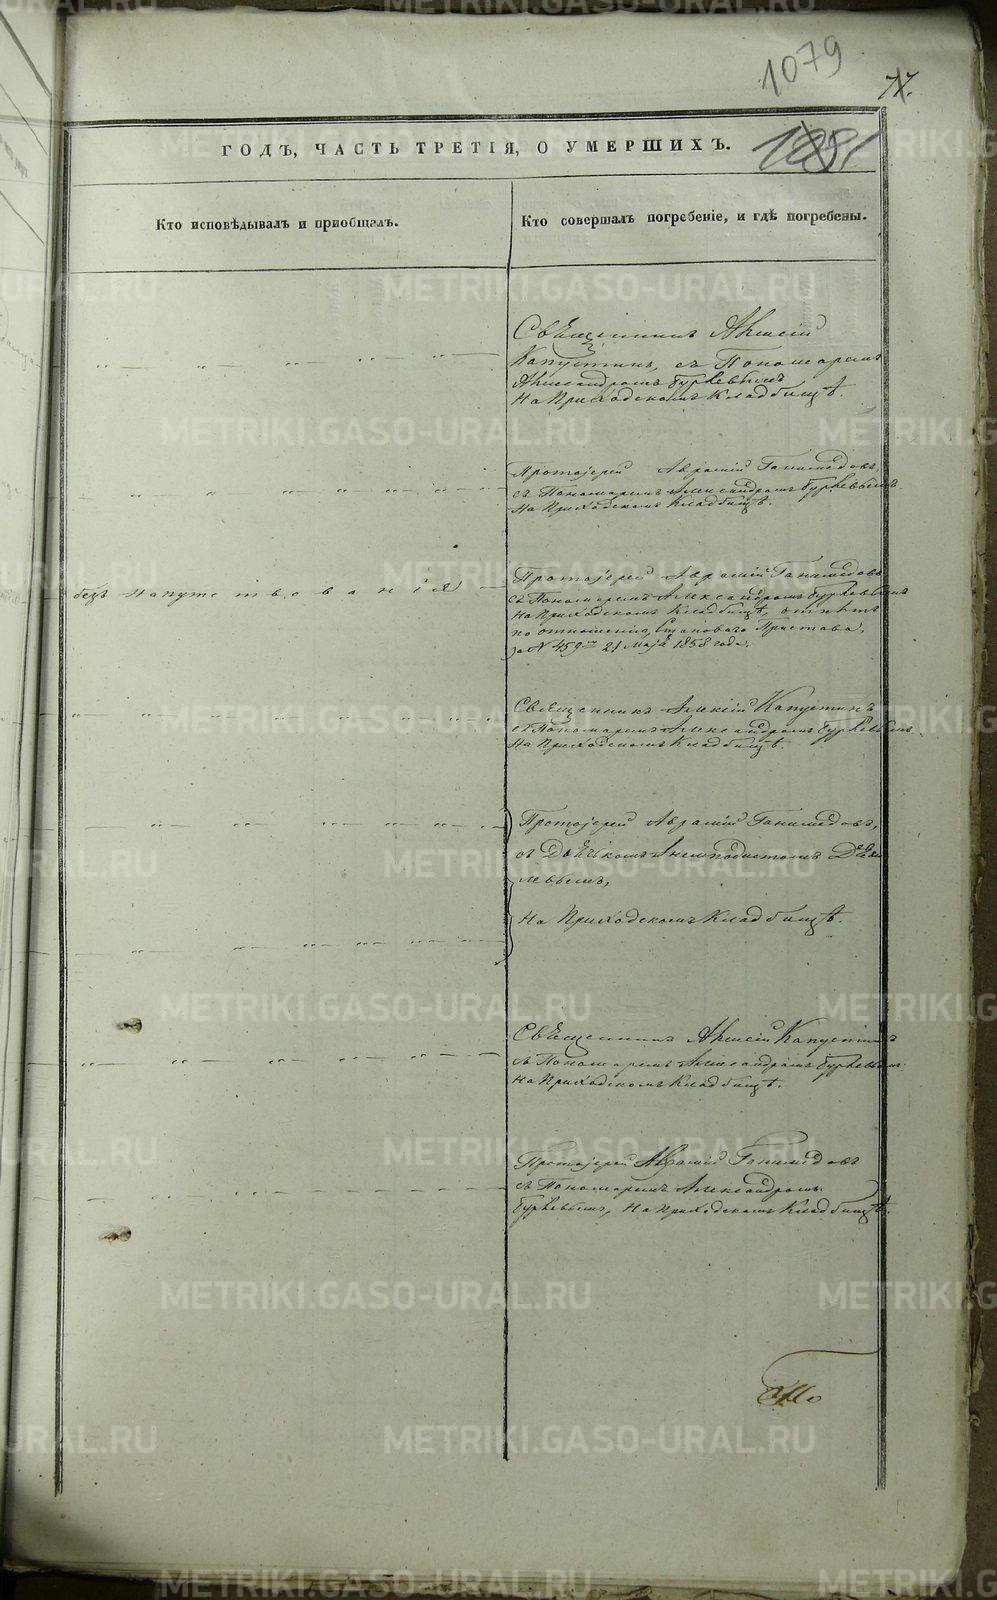 1079
77.
1281
ГОДЪ, ЧАСТЬ ТРЕТІЯ, О УМЕРШИХЪ.
Кто исповѣдывалъ и пріобщалъ.
Кто совершалъ погребеніе, и гдѣ погребены.
Священникъ Алексій
Капустинъ, съ Пономаремъ
Александромъ Буркевымъ
На Приходскомъ Кладбищѣ.
Протоіерей Аврамій Ганимедовъ,
съ Пономаремъ Александромъ Буркевымъ
На Приходскомъ Кладбищѣ.
безъ напутствованія
Протоіерей Аврамій Ганимедовъ
съ Пономаремъ Александромъ Буркевымъ
На Приходскомъ Кладбищѣ, отпѣтъ
по отношенію Становаго Пристава,
за № 459 21 Маія 1858 года.
Священникъ Алексій Капустинъ
съ Пономаремъ Александромъ Буркевымъ
На Приходскомъ Кладбищѣ.
Протоіерей Аврамій Ганимедовъ,
съ Дьячкомъ
левымъ,
На Приходскомъ Кладбищѣ.
Священникъ Алексій Капустинъ
съ Пономаремъ Александромъ Буркевымъ
На Приходскомъ Кладбищѣ.
Протоіерей Аврамій Ганимедовъ
съ Пономаремъ Александромъ
Буркевымъ, На Приходскомъ Кладбищѣ.
METRIKI.GASO-URAL.RU